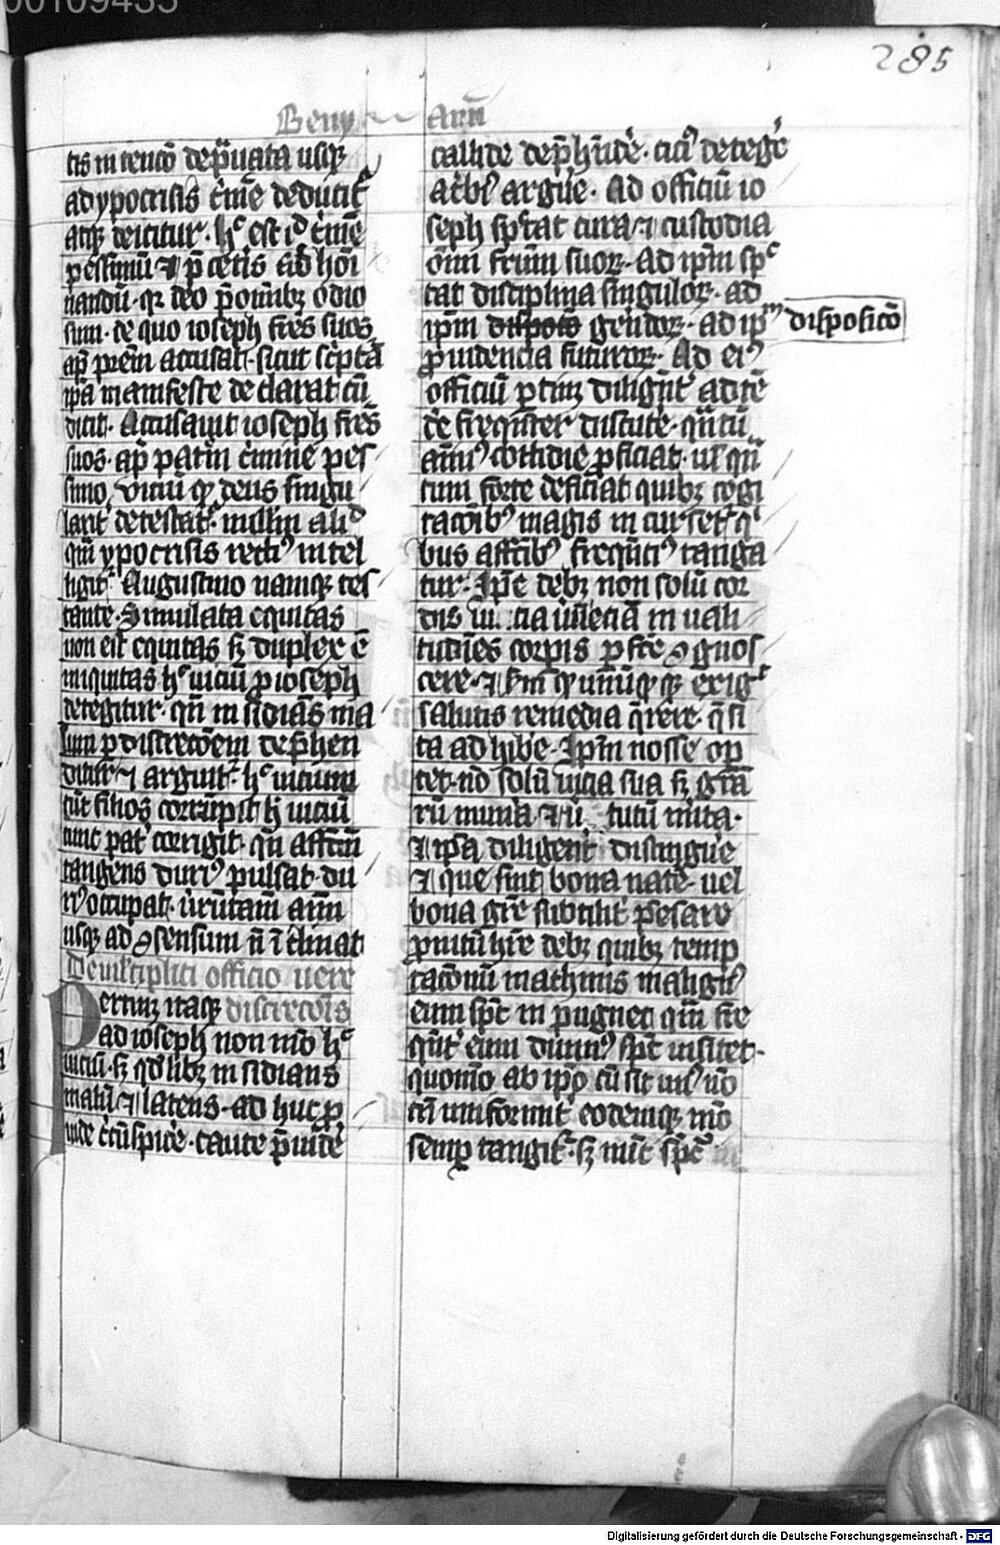 00109435
285
Beny amī
tis intencō dep̄uata usq̄
ad ypocrisis c̄me deducit̄
atq̄ deicitur · h̄ est id c̄mē
pessimū ⁊ p̄ cet̄is abhōi
nandū · qr deo p̄ omībꝫ odio
sum · de quo ioseph fr̄es suos
ap̄ pr̄em accusat · sicut sc̄pta
ip̄a manifeste declarat cū
dicit · Accusauit ioseph fr̄es
suos · ap̄ patr̄m c̄mine pes
simo, viciū q̄ deus singu
larit̄ detestat̄ · nullm̄ aliđ
q̄m ypocrisis recti᷒ intel
ligit̄ · Augustino namq̄ tes
tante · Simulata equitas
non est equitas sꝫ duplex ē
iniquitas h̄ uiciū p̄ ioseph
detegitur · qn̄ insidiās ma
lum p̄ discrecōem dep̄hen
ditur ⁊ arguit̄ · h̄ uicium
cū filios corrūpit h̄ uiciū
tunc pat̄ corrigit · qn̄ affcūm
tangens duri᷒ pulsat · du
ri᷒ occupat · ur̄utam̄ aīm
usq̄ ad ꝯsensum n̄ īclinat
De mltiplici officio uere
Pertinꝫ itaq̄ discrecōis
ad ioseph non mō h̄
uiciū · sꝫ qdlibꝫ insidians
malū ⁊ latens · ad huc p̄
uide c̄cūspic̄e · caute p̄uidē
callide dep̄h̄nde · cici᷒ deteḡe
ac̄bi᷒ argue̅ · Ad officiū io
seph sp̄tat cura ⁊ custodia
om̄i fr̄um suoꝝ · Ad ip̄m sp̄
tat disciplina singuloꝝ · ad
ip̄m dispocō gerendoꝝ · ad ip̄m
disposicō
p̄uidencia futuroꝝ · Ad ei᷒
officiū p̄tinꝫ diligent̄ adtē
de̅ frequent̄er discute̅ · q̄ntū
anim᷒ cottidie p̄ficiat · uł q̄n
tum forte deficiat quibꝫ cogi
tacōibꝫ magis incurset q̄
bus affc̄ibꝫ frequēti᷒ tanga
tur · Ip̄e debꝫ non solū cor
dis ui cia u̅lecia̅ in uali
tudines corp̄is p̄ fc̄e ꝯgnos
cere · ⁊ s̄m q̄ unūq̄q̄ exig̅
salutis remedia q̄rere · q̄si
ta adhibe · Ip̄m nosse op̄
tet · nō solū vicia sua sꝫ gr̄a
rū munia ⁊ ui tutū m̄ita ·
⁊ ip̄a diligent̄ distingue̅
⁊ que sint bona nat̄e · uel
bona gr̄e subtilit̄ pe̅sare
P̄mtū hr̄e debꝫ quibꝫ temp
tacōnū machinis maligni᷒
eum sp̄c inpugnet q̄m fre
q̄nt̄ eum diuin᷒ sp̄c uisitet ·
quomō ab ip̄o cū sit un᷒ nō
cū uniformit̄ eodemq̄ mō
semp̄ tangit̄ · sꝫ nūc sp̄c
Digitalisierung gefördert durch die Deutsche Forschungsgemeinschaft - DFG